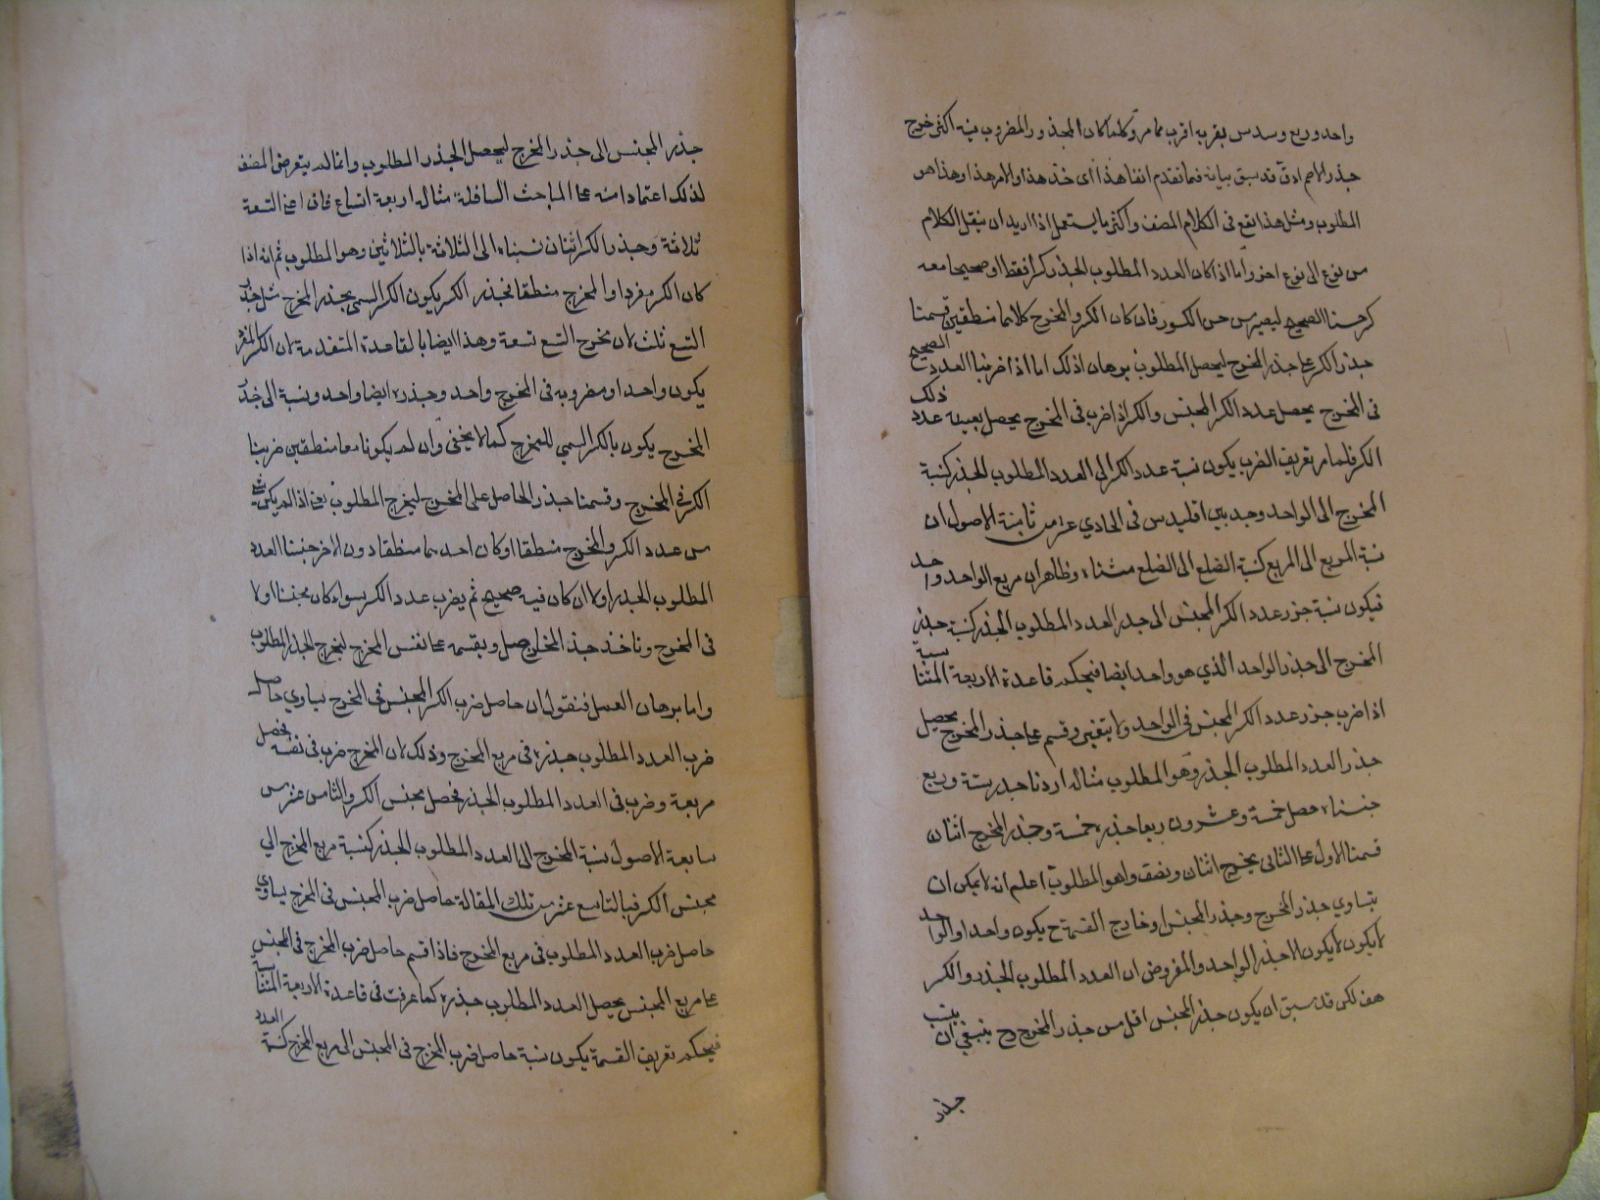 واحد وربع وسدس بقربه اقرب مما مر وكلما كان المجذور المضروب فيه اكثر خرج
جذر الاصم ادق قد سبق بيانه فيما تقدم انفا هذا اى خذ هذا والامر هذا وهذا هو
المطلوب ومثل هذا يقع فى الكلام المصنف واكثر ما يستعمل اذا اريد ان ينقل الكلام
من نوع الى نوع اخر واما اذا كان العدد المطلوب الجذر كسرا فقط او صحيحا معه
كسر جنسنا الصحيح ليصير من جنس الكسور فان كان الكسر والمخرج كلاهما منطقين قسمنا
جذر الكسر على جذر المخرج ليحصل المطلوب برهان ذلك اما اذا ضربنا العدد الصحيح
فى المخرج يحصل عدد الكسر المجنس والكسر اذا ضرب فى المخرج يحصل بعينه عدد ذلك
الكسر فلما مر تعريف الضرب يكون نسبة عدد الكسر الى العدد المطلوب الجذر كنسبة
المخرج الى الواحد وحد بين اقليدس فى الحادي عشر من ثامنة الاصول ان
نسبة المربع الى المربع كنسبة الضلع الى الضلع مثناه وظاهر ان مربع الواحد واحد
فيكون نسبة جزر عدد الكسر المجنس الى جدر العدد المطلوب الجذر كنسبة جذر
المخرج الى جذر الواحد الذي هو واحد ايضا فبحكم قاعدة الاربعة المتناسبة
اذا ضرب جزر عدد الكسر المجنس فى الواحد ولا يتغير وقسم على جذر المخرج يحصل
جذر العدد المطلوب الجذر وهو المطلوب مثاله اردنا جدر ستة وربع
جنسناه حصل خمسة وعشرون ربعا جذره خمسة وجذر المخرج اثنان
قسمنا الاول على الثانى يخرج اثنان ونصف وهو المطلوب اعلم انه لا يمكن ان
يتساوي جذر المخرج وجذر المجنس او خارج القسمة ح يكون واحدا والواحد
لا يكون لا يكون الا جذر الواحد والمفروض ان العدد المطلوب الجذر والكسر
هف لكن قد سبق ان يكون جذر المجنس اقل من جذر المخرج وح ينبغي ان ينسب
جذر
جذر المجنس الى جذر المخرج ليحصل الجذر المطلوب وانما لم يتعرض المصنف
لذلك اعتمادا منه على المباحث السافلة مثاله اربعة اتساع فان اعنى التسعة
ثلاثة وجذر الكسر اثنان نسبناه الى الثلاثة بالثلاثين وهو المطلوب ثم انه اذا
كان الكسر مفردا والمخرج منطقا فجذر الكسر يكون الكسر السمى بجذر المخرج مثل جذر
التسع ثلث لان مخرج التسع تسعة وهذا ايضا بالقاعدة المتقدمة لان الكسر المفرد
يكون واحدا ومضروبه فى المخرج واحد وجذره ايضا واحد ونسبة الى جذر
المخرج يكون بالكسر السمي للمخرج كما لا يخفى وان لم يكونا معا منطقين ضربنا
الكسر فى المخرج وقسمنا جذر الحاصل على المخرج ليخرج المطلوب يعنى اذا لم يكن شي
من عدد الكسر والمخرج منطقا او كان احدهما منطقا دون الاخر جنسنا العدد
المطلوب الجذر اولا ان كان فيه صحيح ثم يضرب عدد الكسر سواء كان مجنسا او لا
فى المخرج وناخذ جذر الحاصل ويقسمه على نفس المخرج ليخرج الجذر المطلوب
واما برهان العمل فنقول ان حاصل ضرب الكسر المجنس فى المخرج يساوي حاصل
ضرب العدد المطلوب جذره فى مربع المخرج وذلك لان المخرج ضرب فى نفسه فحصل
مربعة وضرب فى العدد المطلوب الجذر فحصل مجنس الكسر والثامن عشر من
سابعة الاصول نسبة المخرج الى العدد المطلوب الجذر كنسبة مربع المخرج الي
مجنس الكسر فبالتاسع عشر من تلك المقالة حاصل ضرب المجنس فى المخرج يساوي
حاصل ضرب العدد المطلوب فى مربع المخرج فاذا قسم حاصل ضرب المخرج فى المجنس
على مربع المجنس يحصل العدد المطلوب جذره كما عرفت فى قاعدة الاربعة المتناسبة
فبحكم تعريف القسمة يكون نسبة حاصل ضرب المخرج فى المجنس الى مربع المخرج كنسبة العدد